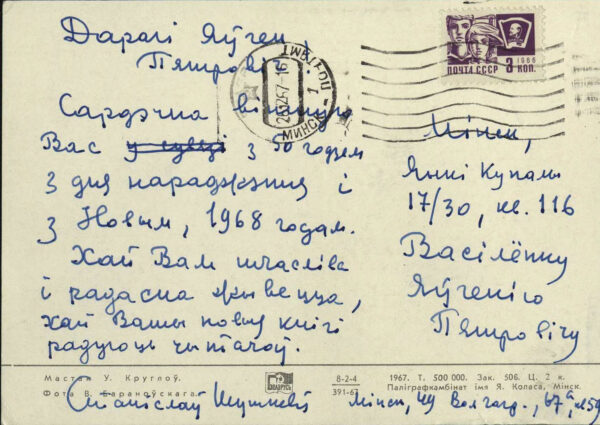 Дарагі Яўген
Пятровіч!
Сардэчна віншую
Вас у сувязі з 50 годзем
з дня нараджэння і
з Новым, 1968 годам.
Хай Вам шчасліва
і радасна жывецца,
хай Вашы новыя кнігі
радуюць чытачоў.
Станіслаў Шушкевіч
ПОЧТАМТ
МИНСК 1
ПОЧТА СССР 3 КОП.
1966
Мінск,
Янкі Купалы
17/30, кв. 116
Васілёнку
Яўгенію
Пятровічу
Мінск, Волгагр., 67а,
Мастак У. Круглоў.
Фота В. Бараноўскага.
БЕЛАРУСЬ
8-2-4
391-67
1967. Т. 500 000. Зак. 506. Ц. 2 к.
Паліграфкамбінат імя Я. Коласа, Мінск.